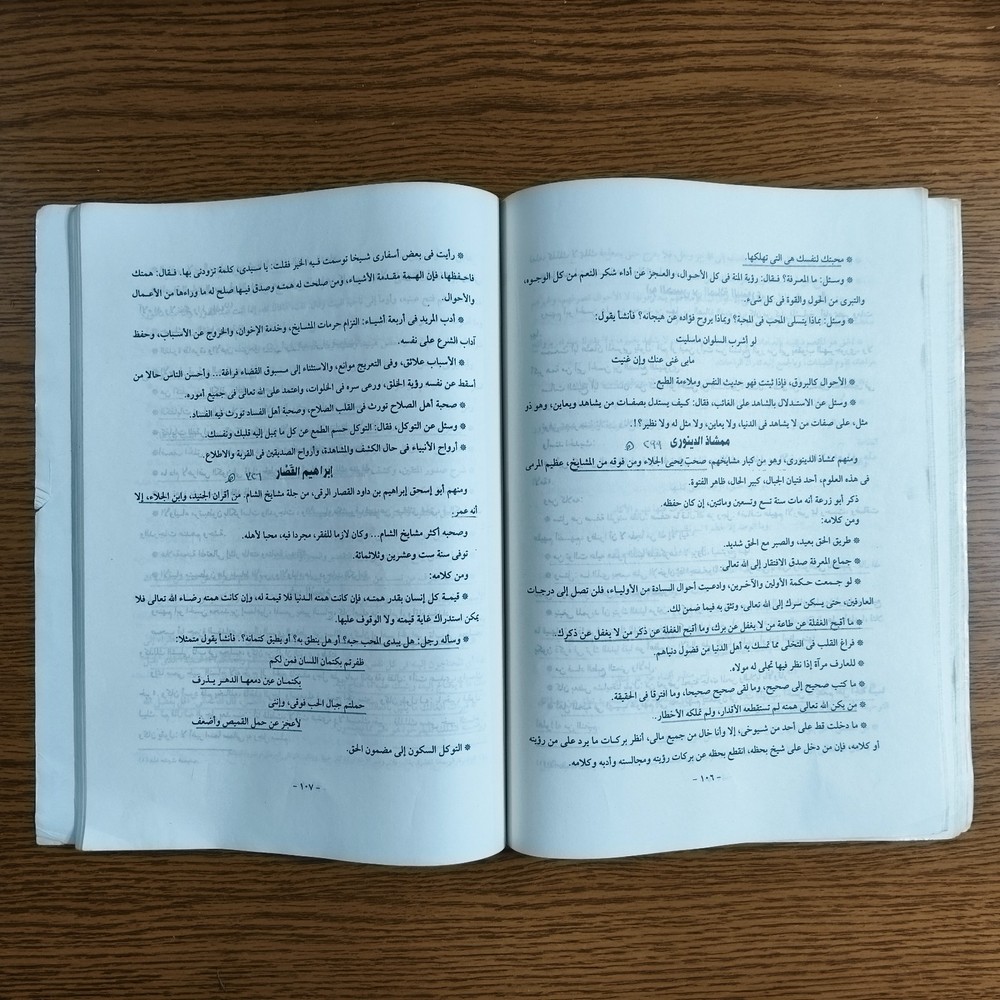 * محبتك لنفسك هى التى تهلكها.
* وسئل: ما المعرفة؟ فـقال: رؤية المنة فى كل الأحـوال، والعـجز عن أداء شكر النعم من كل الوجـوه،
والتبرى من الحول والقوة فى كل شىء.
* وسئل: بماذا يتسلى المحب فى المحبة؟ وبماذا يروح فؤاده عن هيجانه؟ فأنشأ يقول:
لو أشرب السلوان ماسليت
مابى غنى عنك وإن غنيت
* الأحوال كالبروق، فإذا ثبتت فهو حديث النفس وملاءمة الطبع.
* وسئل عن الاستـدلال بالشاهد على الغائب، فقال: كـيف يستدل بصفـات من يشاهد ويعاين، وهو ذو
مثل، على صفات من لا يشاهد فى الدنيا، ولا يعاين، ولا مثل له ولا نظير؟!.
ممشاذ الدينورى ٢٩٩
ومنهم ممشاذ الدينورى، وهو من كبار مشايخهم، صحب يحيى الجلاء ومن فوقه من المشايخ، عظيم المرمى
فى هذه العلوم، أحد فتيان الجبال، كبير الحال، ظاهر الفتوة.
ذكر أبو زرعة أنه مات سنة تسع وتسعين ومائتين، إن كان حفظه.
ومن كلامه:
* طريق الحق بعيد، والصبر مع الحق شديد.
* جماع المعرفة صدق الافتقار إلى الله تعالى.
* لو جـمعت حكـمة الأولين والآخـرين، وادعيت أحوال السـادة من الأوليـاء، فلن تصل إلى درجـات
العارفين، حتى يسكن سرك إلى الله تعالى، وتثق به فيما ضمن لك.
* ما أقبح الغفلة عن طاعة من لا يغفل عن برك، وما أقبح الغفلة عن ذكر من لا يغفل عن ذكرك.
* فراغ القلب فى التخلى مما تمسك به أهل الدنيا من فضول دنياهم.
* للعارف مرآة إذا نظر فيها تجلى له مولاه.
* ما كتب صحيح إلى صحيح، وما لقى صحيح صحيحا، وما افترقا فى الحقيقة.
* من يكن الله تعالى همته لم تستقطعه الأقدار، ولم تملكه الأخطار.
* ما دخلت قط على أحد من شيوخى، إلا وأنا خال من جميع مالى، أنظر بركـات ما يرد على من رؤيته
أو كلامه، فإن من دخل على شيخ بحظه، انقطع بحظه عن بركات رؤيته ومجالسته وأدبه وكلامه.
- ١٠٦ -
* رأيت فى بعض أسفارى شيخا توسمت فـيه الخير فقلت: يا سـيدى، كلمة تزودنى بها. فـقال: همتك
فاحـفظها، فإن الهمة مقـدمة الأشيـاء، ومن صلحت له همتـه وصدق فيـها صلح له ما وراءها من الأعمال
والأحوال.
* أدب المريد فى أربعة أشيـاء: التزام حرمات المشـايخ، وخدمة الإخوان، والخروج عن الأسباب، وحفظ
آداب الشرع على نفسه.
* الأسباب علائق، وفى التعريج موانع، والاستثناء إلى مسـبوق القضاء فراغة... وأحسن الناس حالا من
أسقط عن نفسه رؤية الخلق، ورعى سره فى الخلوات، واعتمد على الله تعالى فى جميع أموره.
* صحبة أهل الصلاح تورث فى القلب الصلاح، وصحبة أهل الفساد تورث فيه الفساد.
* وسئل عن التوكل، فقال: التوكل حسم الطمع عن كل ما يميل إليه قلبك ونفسك.
* أرواح الأنبياء فى حال الكشف والمشاهدة، وأرواح الصديقين فى القربة والاطلاع.
إبراهيم القصَّار ٧٢٦
ومنهم أبو إسحق إبراهيم بن داود القصار الرقى، من جلة مشايخ الشام. من أقران الجنيد، وابن الجلاء، إلا
أنه عمر.
وصحبه أكثر مشايخ الشام... وكان لازما للفقر، مجردا فيه، محبا لأهله.
توفى سنة ست وعشرين وثلاثمائة.
ومن كلامه:
* قيمـة كل إنسان بقدر همتـه، فإن كانت همته الـدنيا فلا قيمة له، وإن كانت همته رضـاء الله تعالى فلا
يمكن استدراك غاية قيمته ولا الوقوف عليها.
* وسأله رجل: هل يبدى المحب حبه؟ أو هل ينطق به؟ أو يطيق كتمانه؟. فأنشأ يقول متمثلا:
ظفرتم بكتمان اللسان فمن لكم
بكتمـان عين دمعهـا الدهـر يـذرف
حملتم جبال الحب فوقى، وإننى
لأعجز عن حمل القميص وأضعف
* التوكل السكون إلى مضمون الحق.
- ١٠٧ -